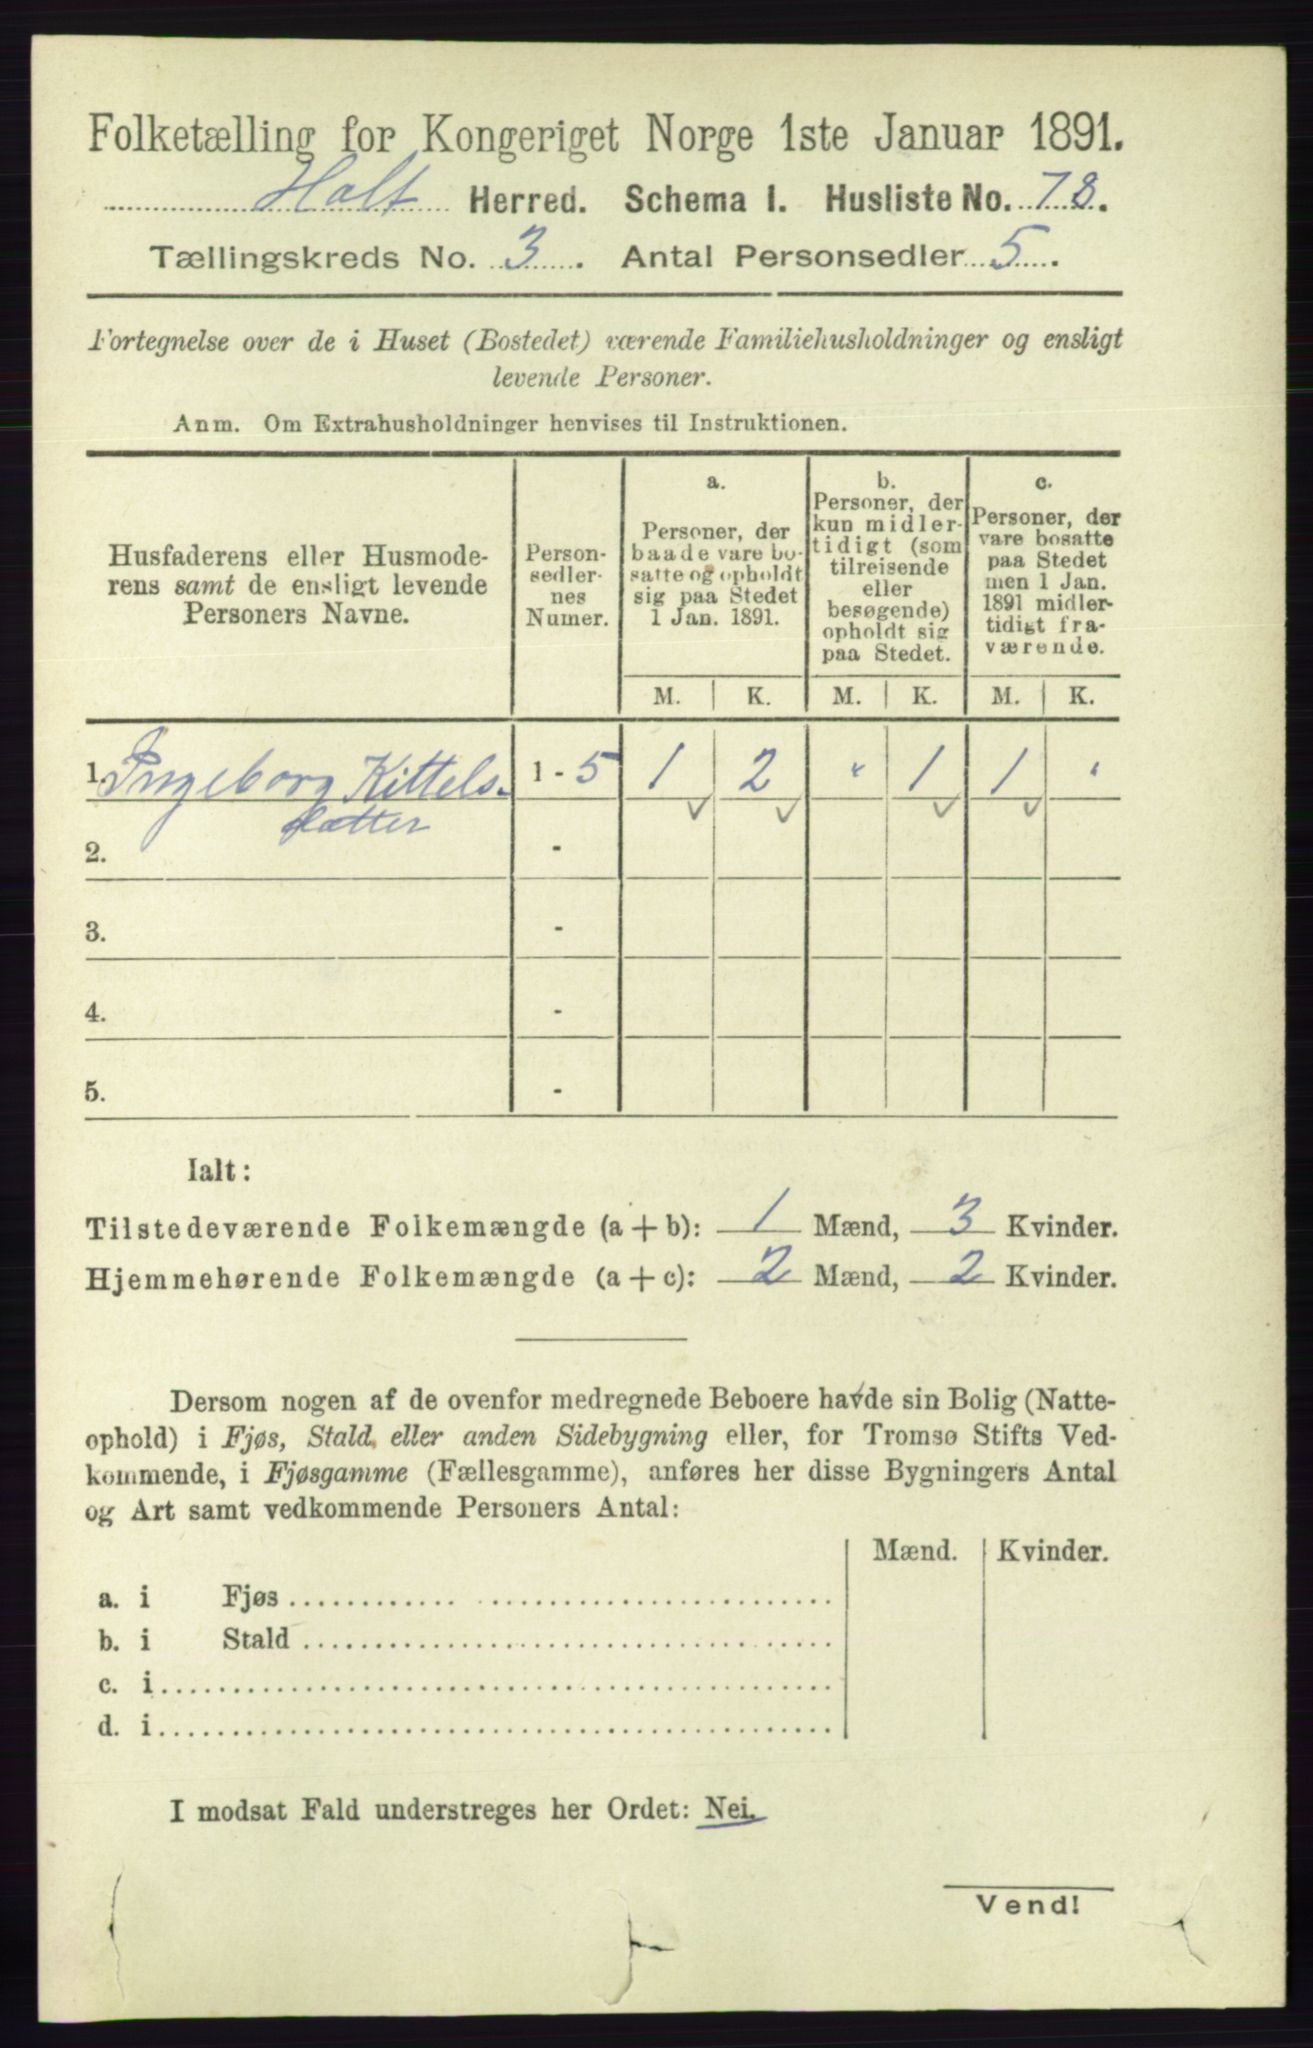 Folketælling for Kongeriget Norge 1ste Januar 1891.
Holt Herred. Schema I. Husliste No. 78.
Tællingskreds No. 3. Antal Personsedler 5.
Fortegnelse over de i Huset (Bostedet) værende Familiehusholdninger og ensligt
levende Personer.
Anm. Om Extrahusholdninger henvises til Instruktionen.
Husfaderens eller Husmode-
rens samt de ensligt levende
Personers Navne.
Person-
sedler-
nes
Numer.
a.
Personer, der
baade vare bo-
satte og opholdt
sig paa Stedet
1 Jan. 1891.
b.
Personer, der
kun midler-
tidigt (som
tilreisende
eller
besøgende)
opholdt sig
paa Stedet.
c.
Personer, der
vare bosatte
paa Stedet
men 1 Jan.
1891 midler-
tidigt fra-
værende.
M. K. M. K. M. K.
1. Ingeborg Kittels- 1 - 5 1 2 " 1 1 "
datter
2. -
3. -
4. -
5. -
Ialt:
Tilstedeværende Folkemængde (a + b): 1 Mænd, 3 Kvinder.
Hjemmehørende Folkemængde (a + c): 2 Mænd, 2 Kvinder.
Dersom nogen af de ovenfor medregnede Beboere havde sin Bolig (Natte-
ophold) i Fjøs, Stald eller anden Sidebygning eller, for Tromsø Stifts Ved-
kommende, i Fjøsgamme (Fællesgamme), anføres her disse Bygningers Antal
og Art samt vedkommende Personers Antal:
Mænd. Kvinder.
a. i Fjøs
b. i Stald
c. i
d. i
I modsat Fald understreges her Ordet: Nei.
Vend!